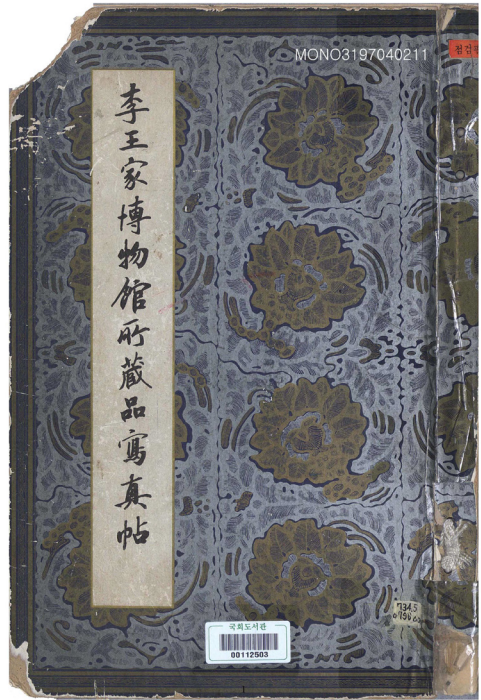 MONO3197040211
李王家博物館所藏品寫真帖
국회도서관
00112503
734.5